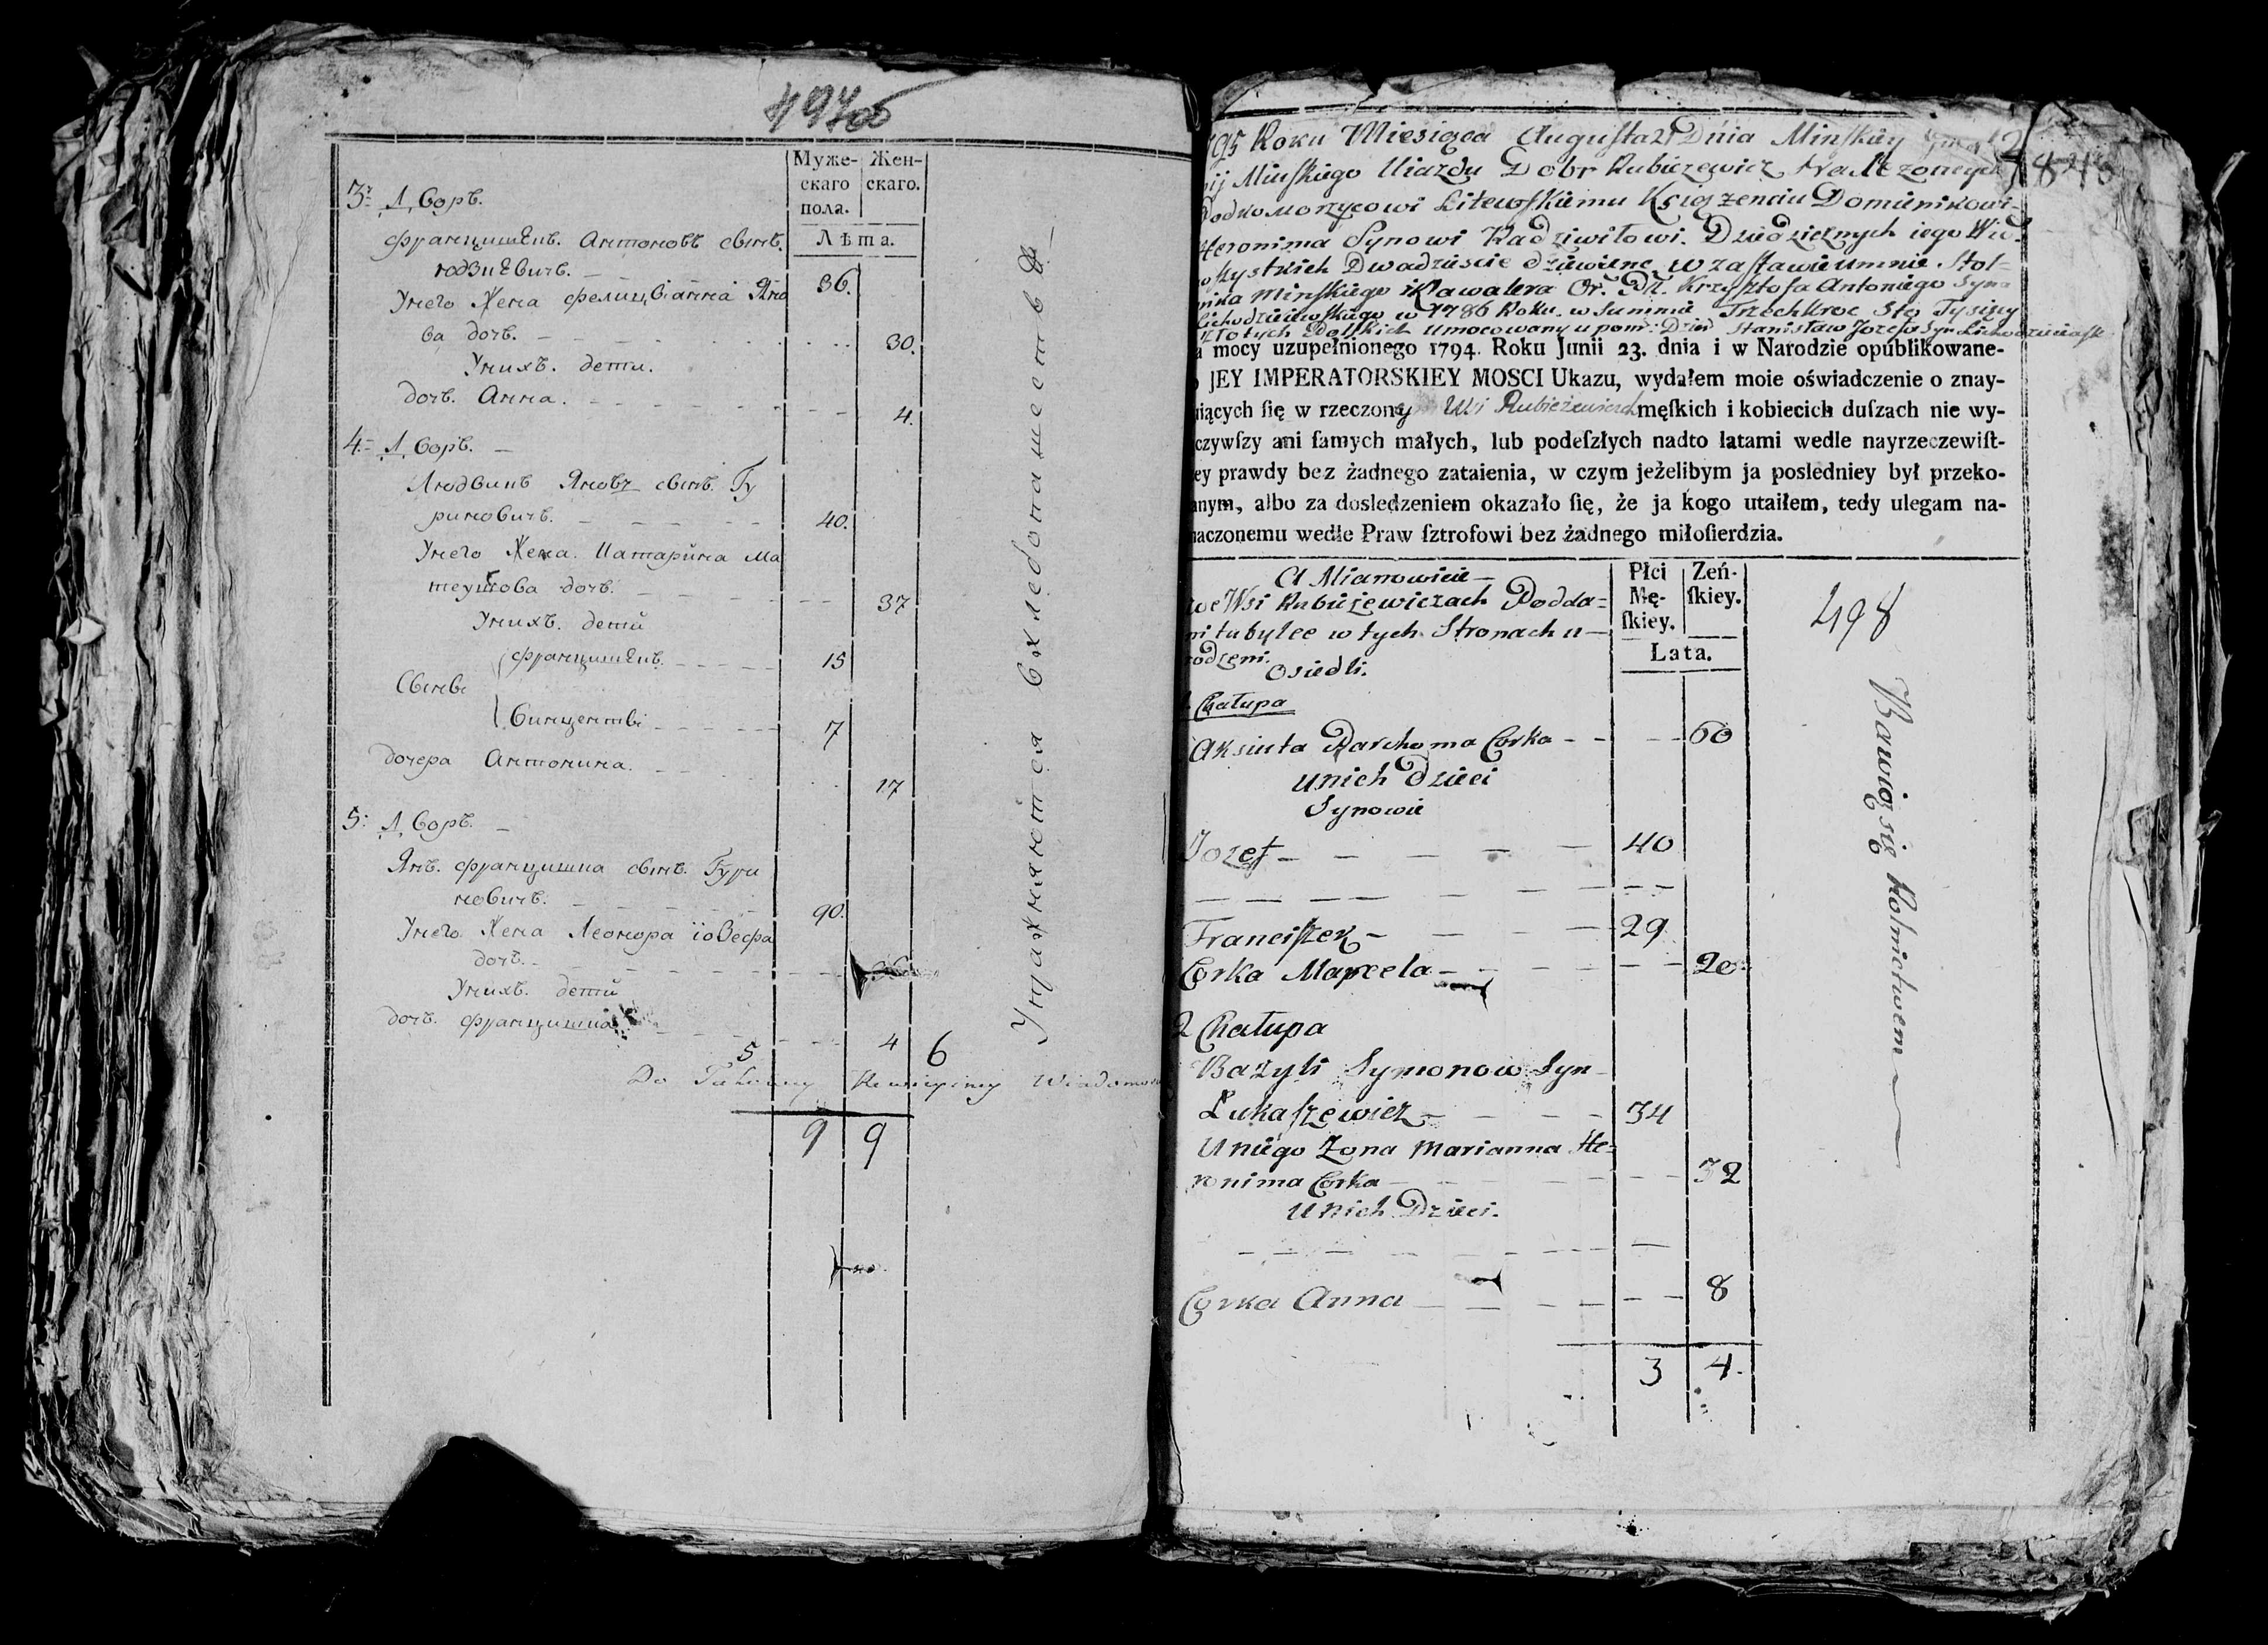 497об
Муже- Жен-
скаго скаго.
пола.
Лѣта.
3. Дворъ.
Францишекъ Антоновъ сынъ
36.
У него жена Фелицианна Яно
ва дочь. 30.
У нихъ дети.
дочь Анна. 4.
4. Дворъ.
Людвикъ Яновъ сынъ Гу
риновичъ. 40.
У него жена Катарина Ма
теушова дочь. 37
У нихъ дети
Францишекъ. 15
Сыны
Винценты 7
дочера Антонина. 17
5. Дворъ.
Янъ Францишка сынъ Гури
новичъ. 90.
У него жена Леонора Іозефа
дочь.
У нихъ дети
дочь Францишка 4
5 6
Do
9 9
Упражняются в хледопашестве
795 Roku Miesiąca Augusta 21 Dnia Minskiey
Minskiego Uiazdu Dobr Rubieżewicz
Podkomorzycowi Litewskiemu Xsiążenciu Dominikowi
Heronima Synowi Radziwiłowi. Dziedzicznych iego
Dwadziescie w zastawie u mnie Stol-
nika Minskiego Kawalera Or: Krzysztofa Antoniego Syna
w 1786 Roku w Summie Trzechkroc Sto Tysięcy
złotych Polskich Umocowany Stanisław Jozefa Syn
a mocy uzupełnionego 1794. Roku Junii 23. dnia i w Narodzie opublikowane-
o JEY IMPERATORSKIEY MOSCI Ukazu, wydałem moie oświadczenie o znay-
uiących ſię w rzeczoney Wsi Rubieżewiczach męſkich i kobiecich duſzach nie wy-
czywſzy ani ſamych małych, lub podeſzłych nadto latami wedle nayrzeczewiſt-
ey prawdy bez żadnego zataienia, w czym jeżelibym ja posledniey był przeko-
anym, albo za dosledzeniem okazało ſię, że ja kogo utaiłem, tedy ulegam na-
naczonemu wedle Praw ſztrofowi bez żadnego miłoſierdzia.
A Mianowicie Płci Zeń-
we Wsi Rubieżewiczach Podda- Mę- ſkiey.
ni tubylce w tych Stronach u- ſkiey.
rodzeni. Lata.
Osiedli.
498
Chałupa
Aksiuta Parchoma Corka 60
U nich Dzieci
Synowie
Jozef 40
Franciszek 29
Corka Marcela 20
2 Chałupa
Bazyli Symonow Syn
Łukaszewicz 34
U niego Zona Marianna He-
ronima Corka 32
U nich Dzieci.
Corka Anna 8
3 4
Bawią się Rolnictwem